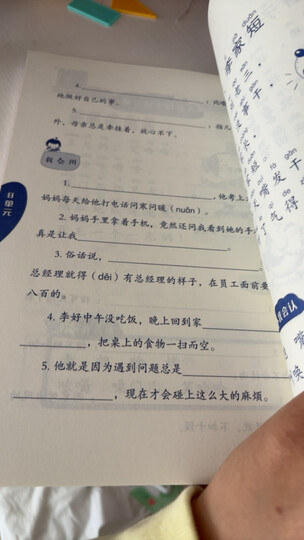 4.
她做好自己的事。
5.
外，母亲总是牵挂着，放心不下。
我会用
1.
，他考上
妈妈每天给他打电话问寒问暖（nuǎn）。
2. 妈妈手里拿着手机，竟然还问我看到她的手
真是让我。
3. 俗话说，
总经理就得（děi）有总经理的样子，在员工面前要
八百的。
4. 李好中午没吃饭，晚上回到家
，把桌上的食物一扫而空。
5. 他就是因为遇到问题总是
，现在才会碰上这么大的麻烦。
日单元
短
家
三，
干，
头，
嘴发干
了气得
会认